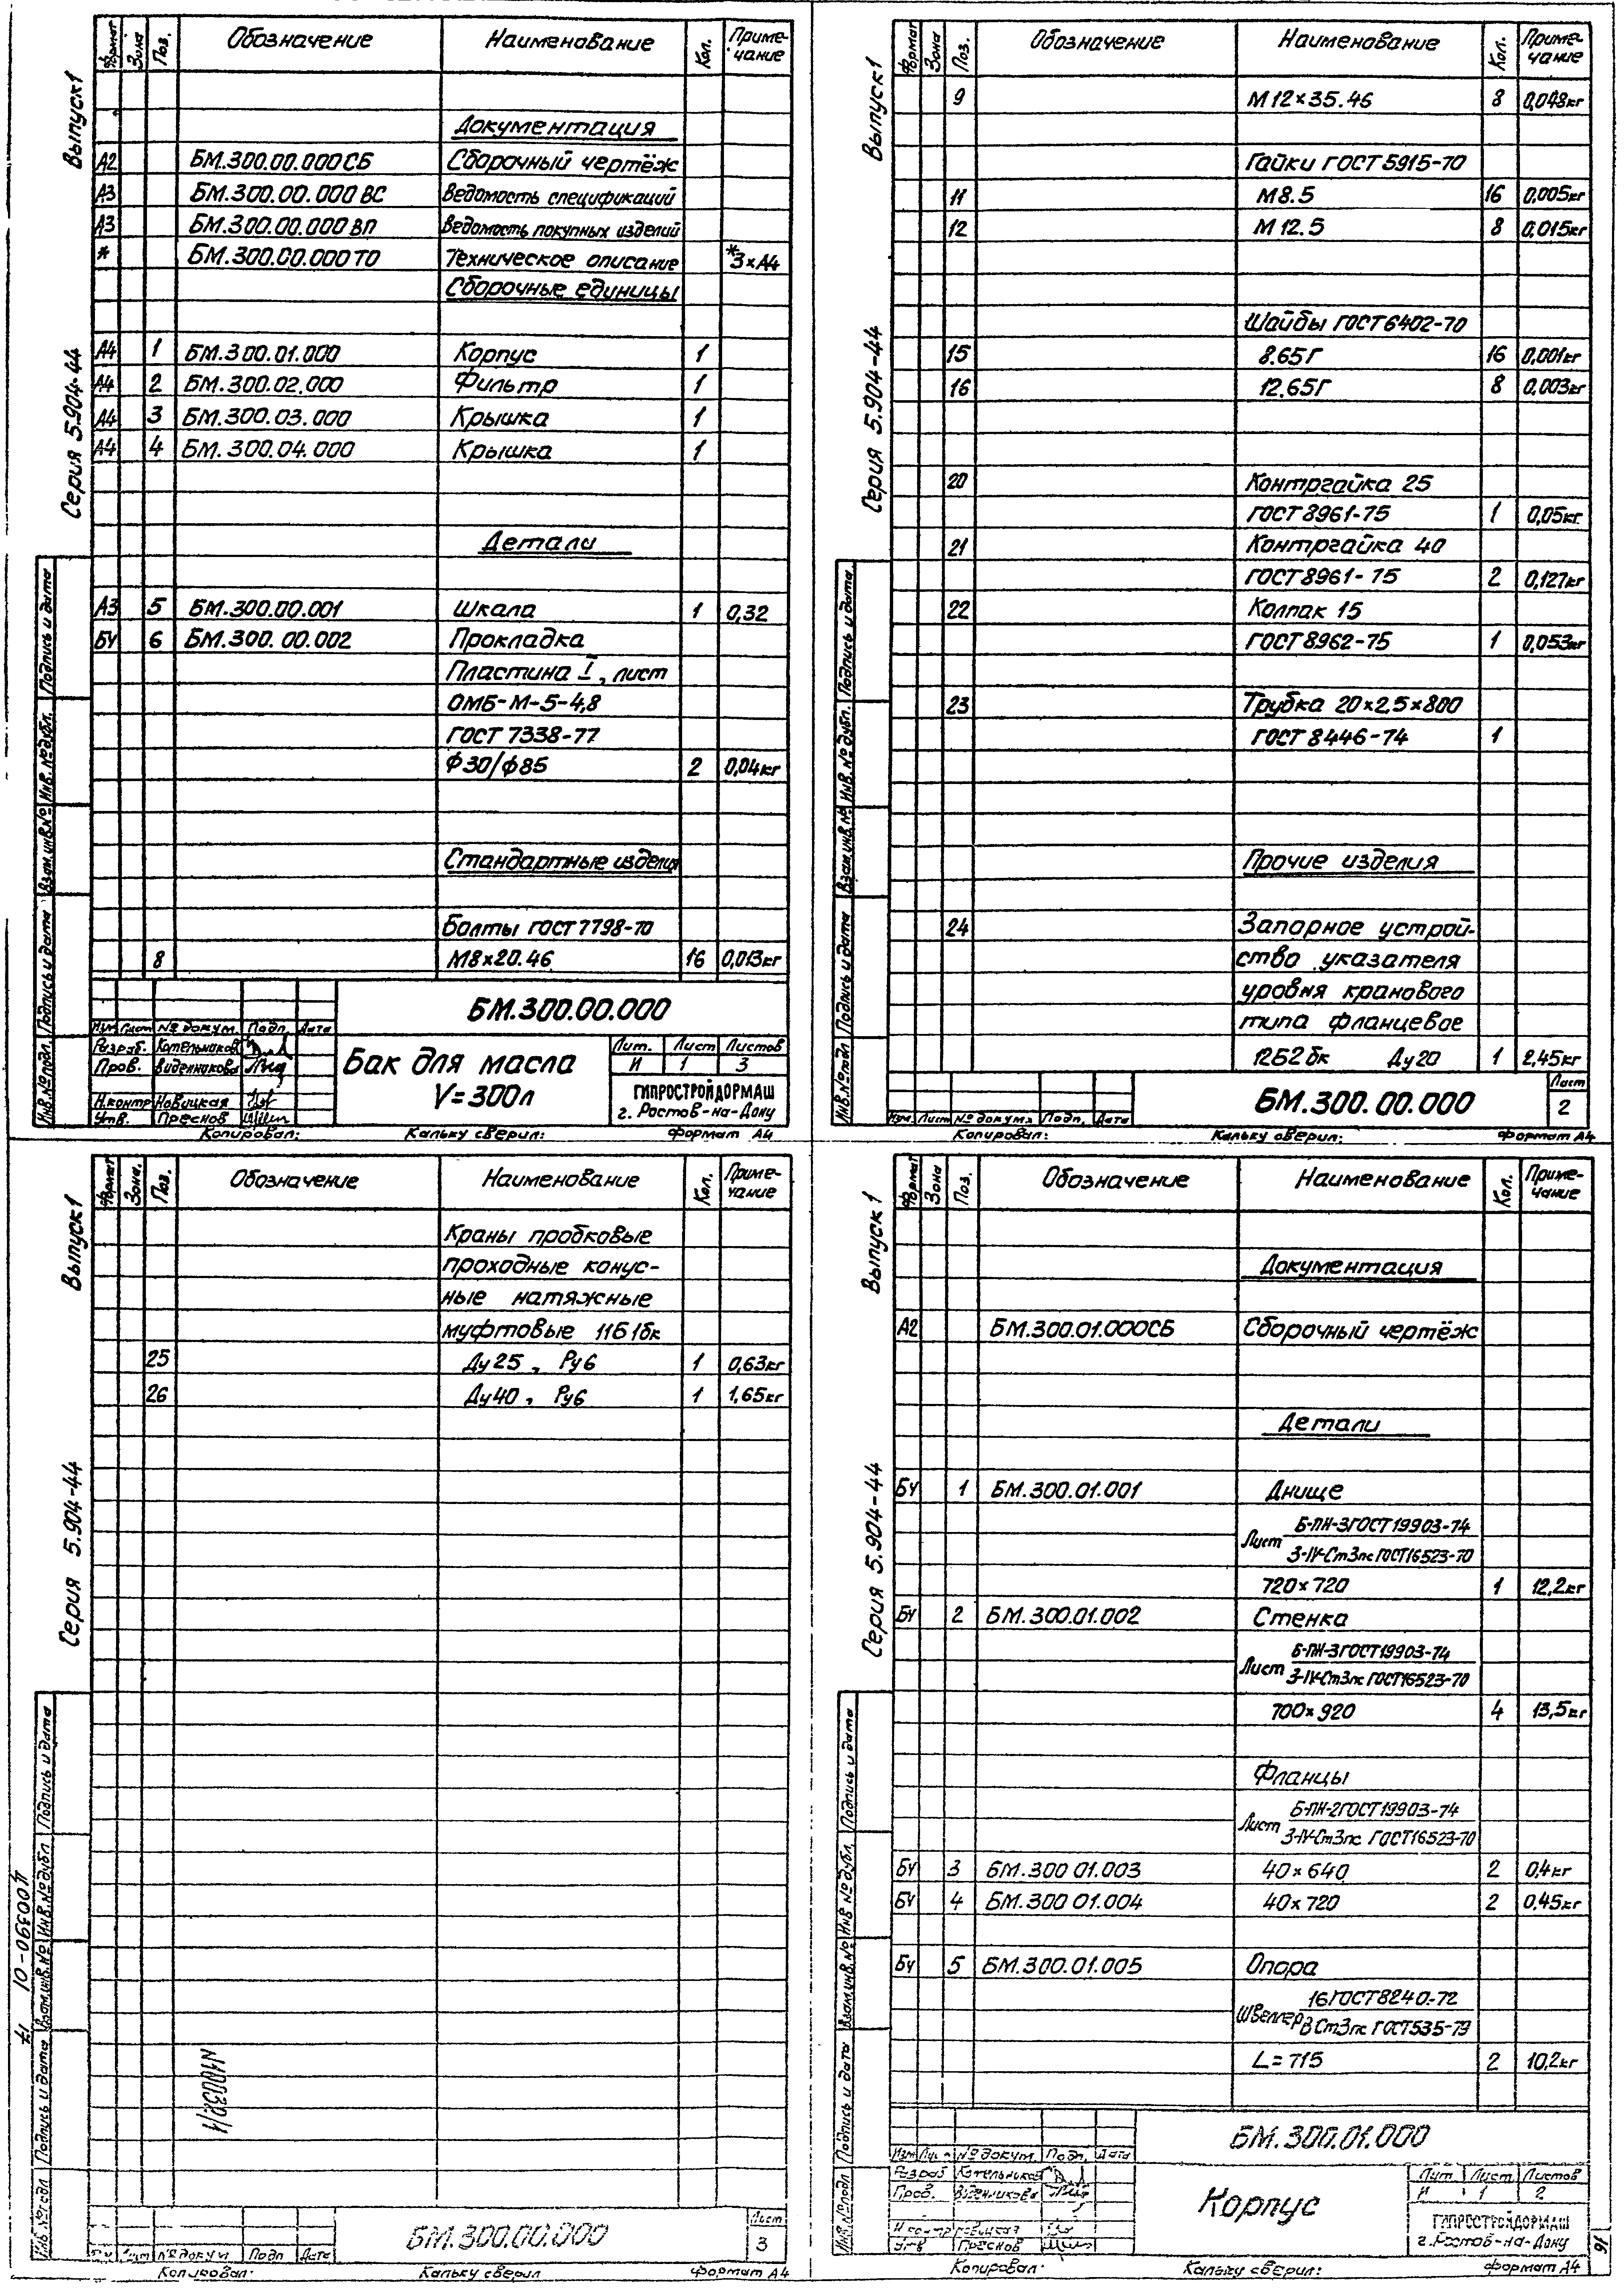 Выпуск 1
Серия 5.904-44
Формат Зона Поз. Обозначение Наименование Кол. Приме-чание
Документация
А2 БМ.300.00.000СБ Сборочный чертёж
А3 БМ.300.00.000ВС Ведомость спецификаций
А3 БМ.300.00.000ВП Ведомость покупных изделий
* БМ.300.00.000ТО Техническое описание *3×А4
Сборочные единицы
А4 1 БМ.300.01.000 Корпус 1
А4 2 БМ.300.02.000 Фильтр 1
А4 3 БМ.300.03.000 Крышка 1
А4 4 БМ.300.04.000 Крышка 1
Детали
А3 5 БМ.300.00.001 Шкала 1 0,32
БЧ 6 БМ.300.00.002 Прокладка
Пластина I, лист
ОМБ-М-5-4,8
ГОСТ 7338-77
Ф30/Ф85 2 0,04кг
Стандартные изделия
Болты ГОСТ 7798-70
8 М8×20.46 16 0,013кг
Инв.№подл. Подпись и дата Взам.инв.№ Инв.№дубл. Подпись и дата
БМ.300.00.000
Изм Лист № докум. Подп. Дата
Разраб. Котельникова
Пров. Виденникова
Н.контр Новицкая
Утв. Преснов
Бак для масла
V=300л
Лит. Лист Листов
И 1 3
ГИПРОСТРОЙДОРМАШ
г. Ростов-на-Дону
Копировал: Кальку сверил: Формат А4
Выпуск 1
Серия 5.904-44
Формат Зона Поз. Обозначение Наименование Кол. Приме-чание
9 М12×35.46 8 0,048кг
Гайки ГОСТ 5915-70
11 М8.5 16 0,005кг
12 М12.5 8 0,015кг
Шайбы ГОСТ 6402-70
15 8.65Г 16 0,001кг
16 12.65Г 8 0,003кг
20 Контргайка 25
ГОСТ 8961-75 1 0,05кг
21 Контргайка 40
ГОСТ 8961-75 2 0,127кг
22 Колпак 15
ГОСТ 8962-75 1 0,053кг
23 Трубка 20×2,5×800
ГОСТ 8446-74 1
Прочие изделия
24 Запорное устрой-
ство указателя
уровня кранового
типа фланцевое
12Б2бк Ду20 1 2,45кг
Инв.№подл Подпись и дата Взам.инв.№ Инв.№дубл. Подпись и дата
Изм. Лист № докум. Подп. Дата
БМ.300.00.000
Лист
2
Копировал: Кальку сверил: Формат А4
Выпуск 1
Серия 5.904-44
Формат Зона. Поз. Обозначение Наименование Кол. Приме-чание
Краны пробковые
проходные конус-
ные натяжные
муфтовые 11Б1бк
25 Ду25, Ру6 1 0,63кг
26 Ду40, Ру6 1 1,65кг
Инв.№подл Подпись и дата Взам.инв.№ Инв.№дубл. Подпись и дата
40039О-01 17
№ докум Подп Дата
БМ.300.00.000
Лист
3
Копировал: Кальку сверил Формат А4
Выпуск 1
Серия 5.904-44
Формат Зона Поз. Обозначение Наименование Кол. Приме-чание
Документация
А2 БМ.300.01.000СБ Сборочный чертёж
Детали
БЧ 1 БМ.300.01.001 Днище
Лист Б-ПН-3 ГОСТ 19903-74
3-IV-Ст3пс ГОСТ 16523-70
720×720 1 12,2кг
БЧ 2 БМ.300.01.002 Стенка
Лист Б-ПН-3 ГОСТ 19903-74
3-IV-Ст3пс ГОСТ 16523-70
700×920 4 13,5кг
Фланцы
Лист Б-ПН-2 ГОСТ 19903-74
3-IV-Ст3пс ГОСТ 16523-70
БЧ 3 БМ.300 01.003 40×640 2 0,4кг
БЧ 4 БМ.300 01.004 40×720 2 0,45кг
БЧ 5 БМ.300.01.005 Опора
Швеллер 16 ГОСТ 8240-72
В Ст3пс ГОСТ 535-79
L=715 2 10,2кг
Инв.№подл Подпись и дата Взам.инв.№ Инв.№дубл. Подпись и дата
БМ.300.01.000
Изм Лист № докум. Подп. Дата
Разраб Котельникова
Пров. Виденникова
Н контр Новицкая
Утв Преснов
Корпус
Лит Лист Листов
И 1 2
ГИПРОСТРОЙДОРМАШ
г. Ростов-на-Дону
16
Копировал: Кальку сверил: Формат А4